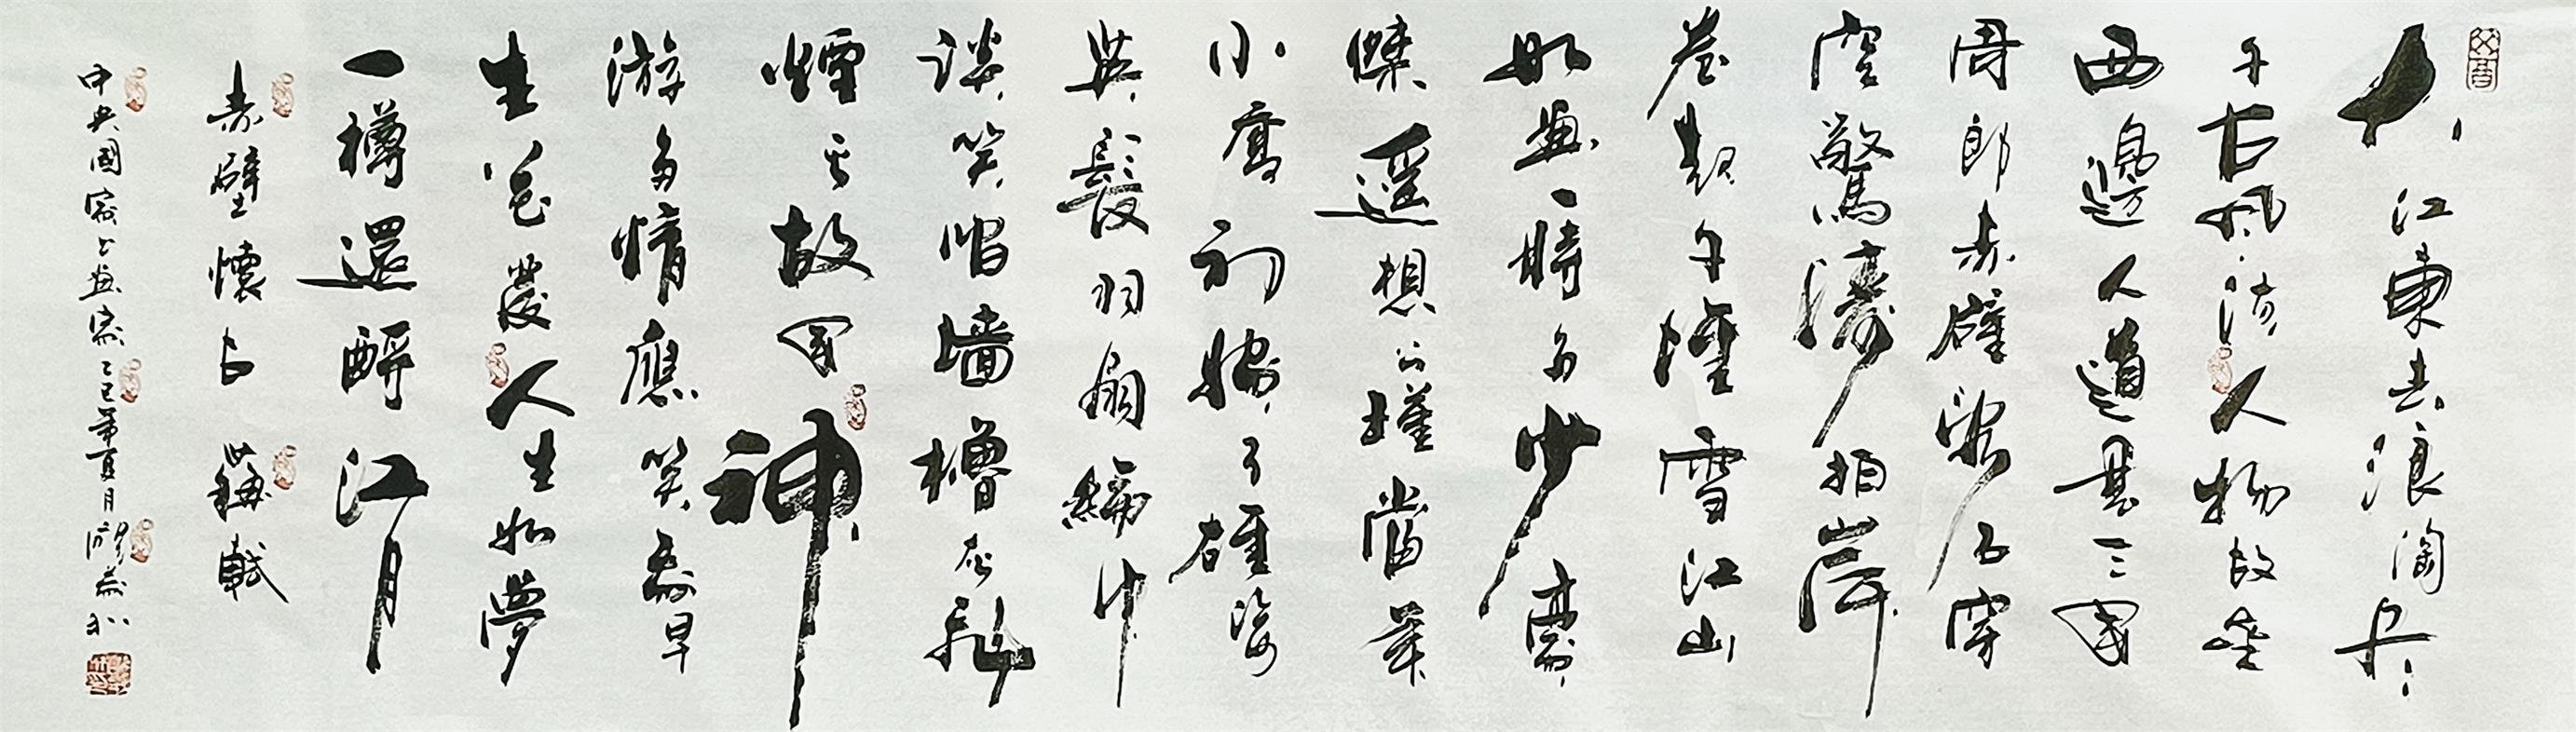 大江東去浪淘尽
千古風流人物故壘
西邊人道是三国
周郎赤壁亂石穿
空驚濤拍岸
卷起千堆雪江山
如画一時多少豪
傑遥想公瑾當年
小喬初嫁了雄姿
英髮羽扇綸巾
談笑间墙櫓灰飛
煙灭故国神
游多情應笑我早
生花發人生如夢
一樽還酹江月
赤壁懷古 蘇軾
中央國家书画家乙巳年夏月